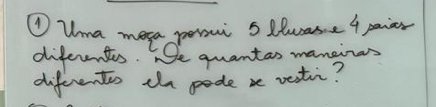 ① Uma moça possui 5 blusas e 4 saias
diferentes. De quantas maneiras
diferentes ela pode se vestir?